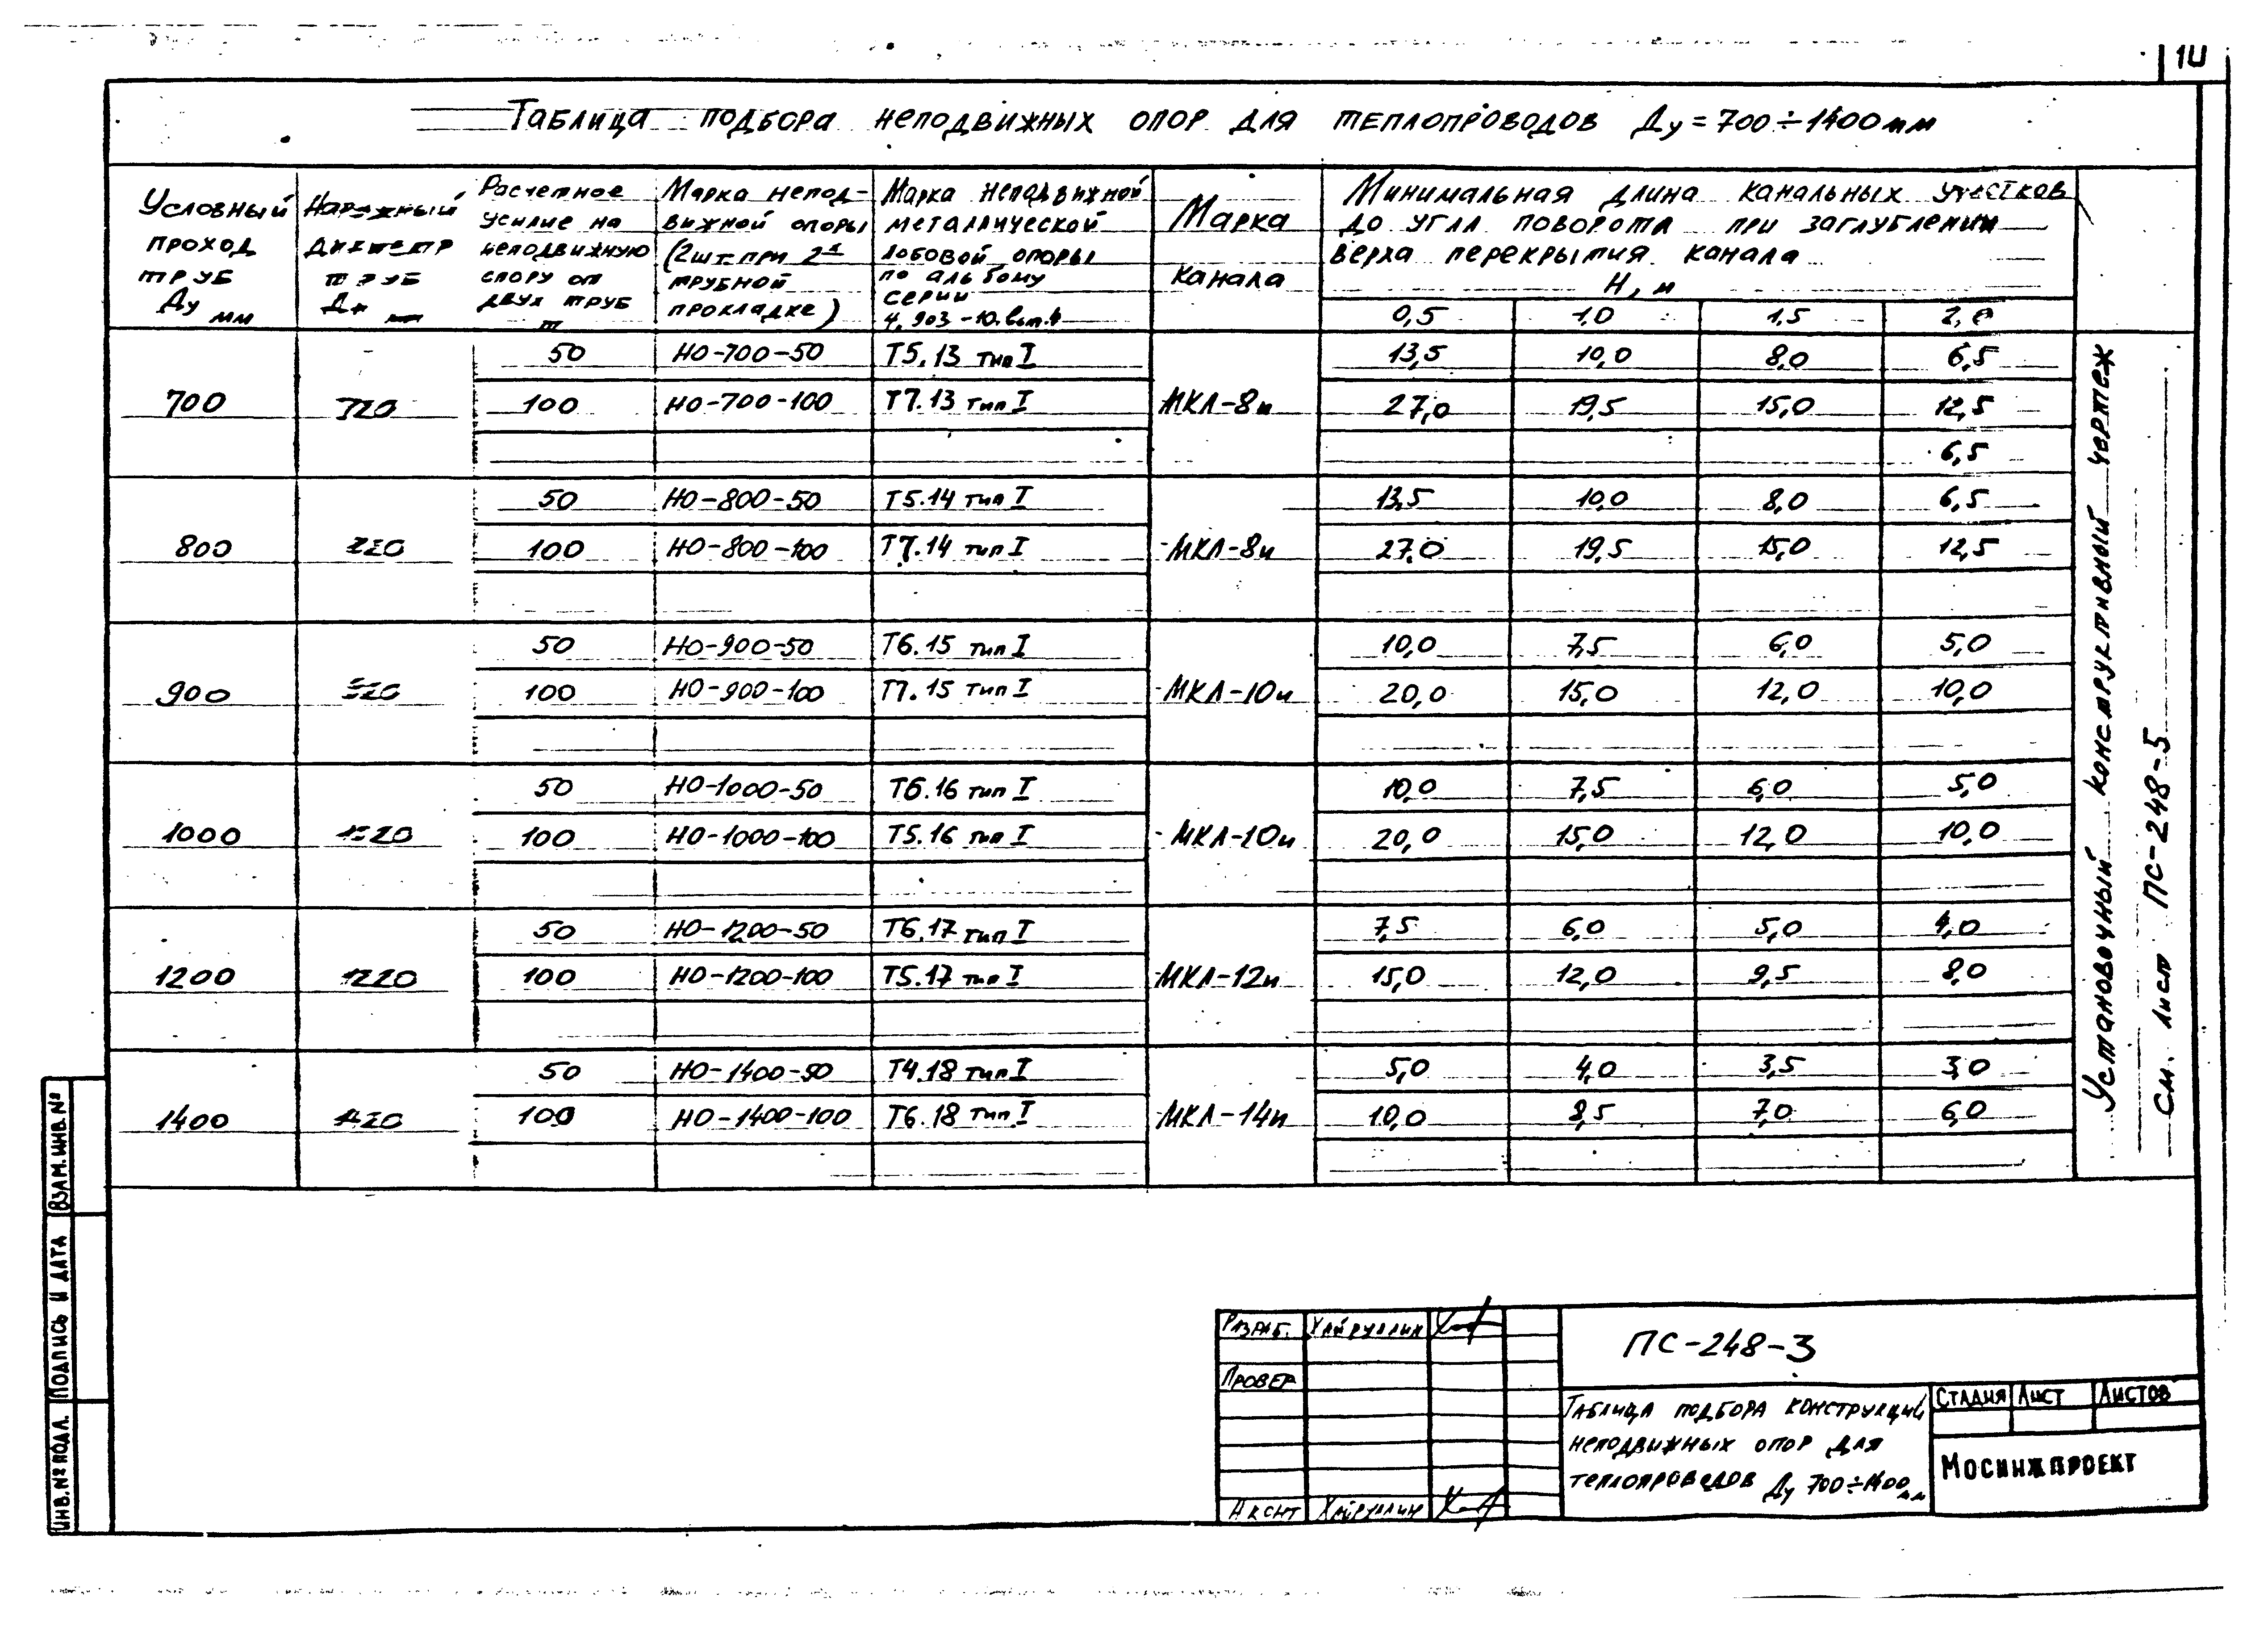 10
Таблица подбора неподвижных опор для теплопроводов Ду = 700 ÷ 1400 мм
Условный проход труб Ду мм
Наружный диаметр труб Дн мм
Расчетное усилие на неподвижную опору от двух труб т
Марка неподвижной опоры (2шт. при 2х трубной прокладке)
Марка неподвижной металлической лобовой опоры по альбому серии 4.903-10. вып.4
Марка канала
Минимальная длина канальных участков до угла поворота при заглублении верха перекрытия канала
Н, м
0,5 1,0 1,5 2,0
50 НО-700-50 Т5.13 тип I 13,5 10,0 8,0 6,5
700 720 100 НО-700-100 Т7.13 тип I МКЛ-8и 27,0 19,5 15,0 12,5
6,5
50 НО-800-50 Т5.14 тип I 13,5 10,0 8,0 6,5
800 820 100 НО-800-100 Т7.14 тип I МКЛ-8и 27,0 19,5 15,0 12,5
50 НО-900-50 Т6.15 тип I 10,0 7,5 6,0 5,0
900 920 100 НО-900-100 Т7.15 тип I МКЛ-10и 20,0 15,0 12,0 10,0
50 НО-1000-50 Т6.16 тип I 10,0 7,5 6,0 5,0
1000 1020 100 НО-1000-100 Т5.16 тип I МКЛ-10и 20,0 15,0 12,0 10,0
50 НО-1200-50 Т6.17 тип I 7,5 6,0 5,0 4,0
1200 1220 100 НО-1200-100 Т5.17 тип I МКЛ-12и 15,0 12,0 9,5 8,0
50 НО-1400-50 Т4.18 тип I 5,0 4,0 3,5 3,0
1400 1420 100 НО-1400-100 Т6.18 тип I МКЛ-14и 10,0 8,5 7,0 6,0
Установочный конструктивный чертеж
См. лист ПС-248-5
ВЗАМ.ИНВ.№
ПОДПИСЬ И ДАТА
ИНВ.№ПОДЛ.
Разраб. Хайруллин
Провер
Н КОНТ Хайруллин
ПС-248-3
Таблица подбора конструкций
неподвижных опор для
теплопроводов Ду 700÷1400 мм
Стадия Лист Листов
Мосинжпроект